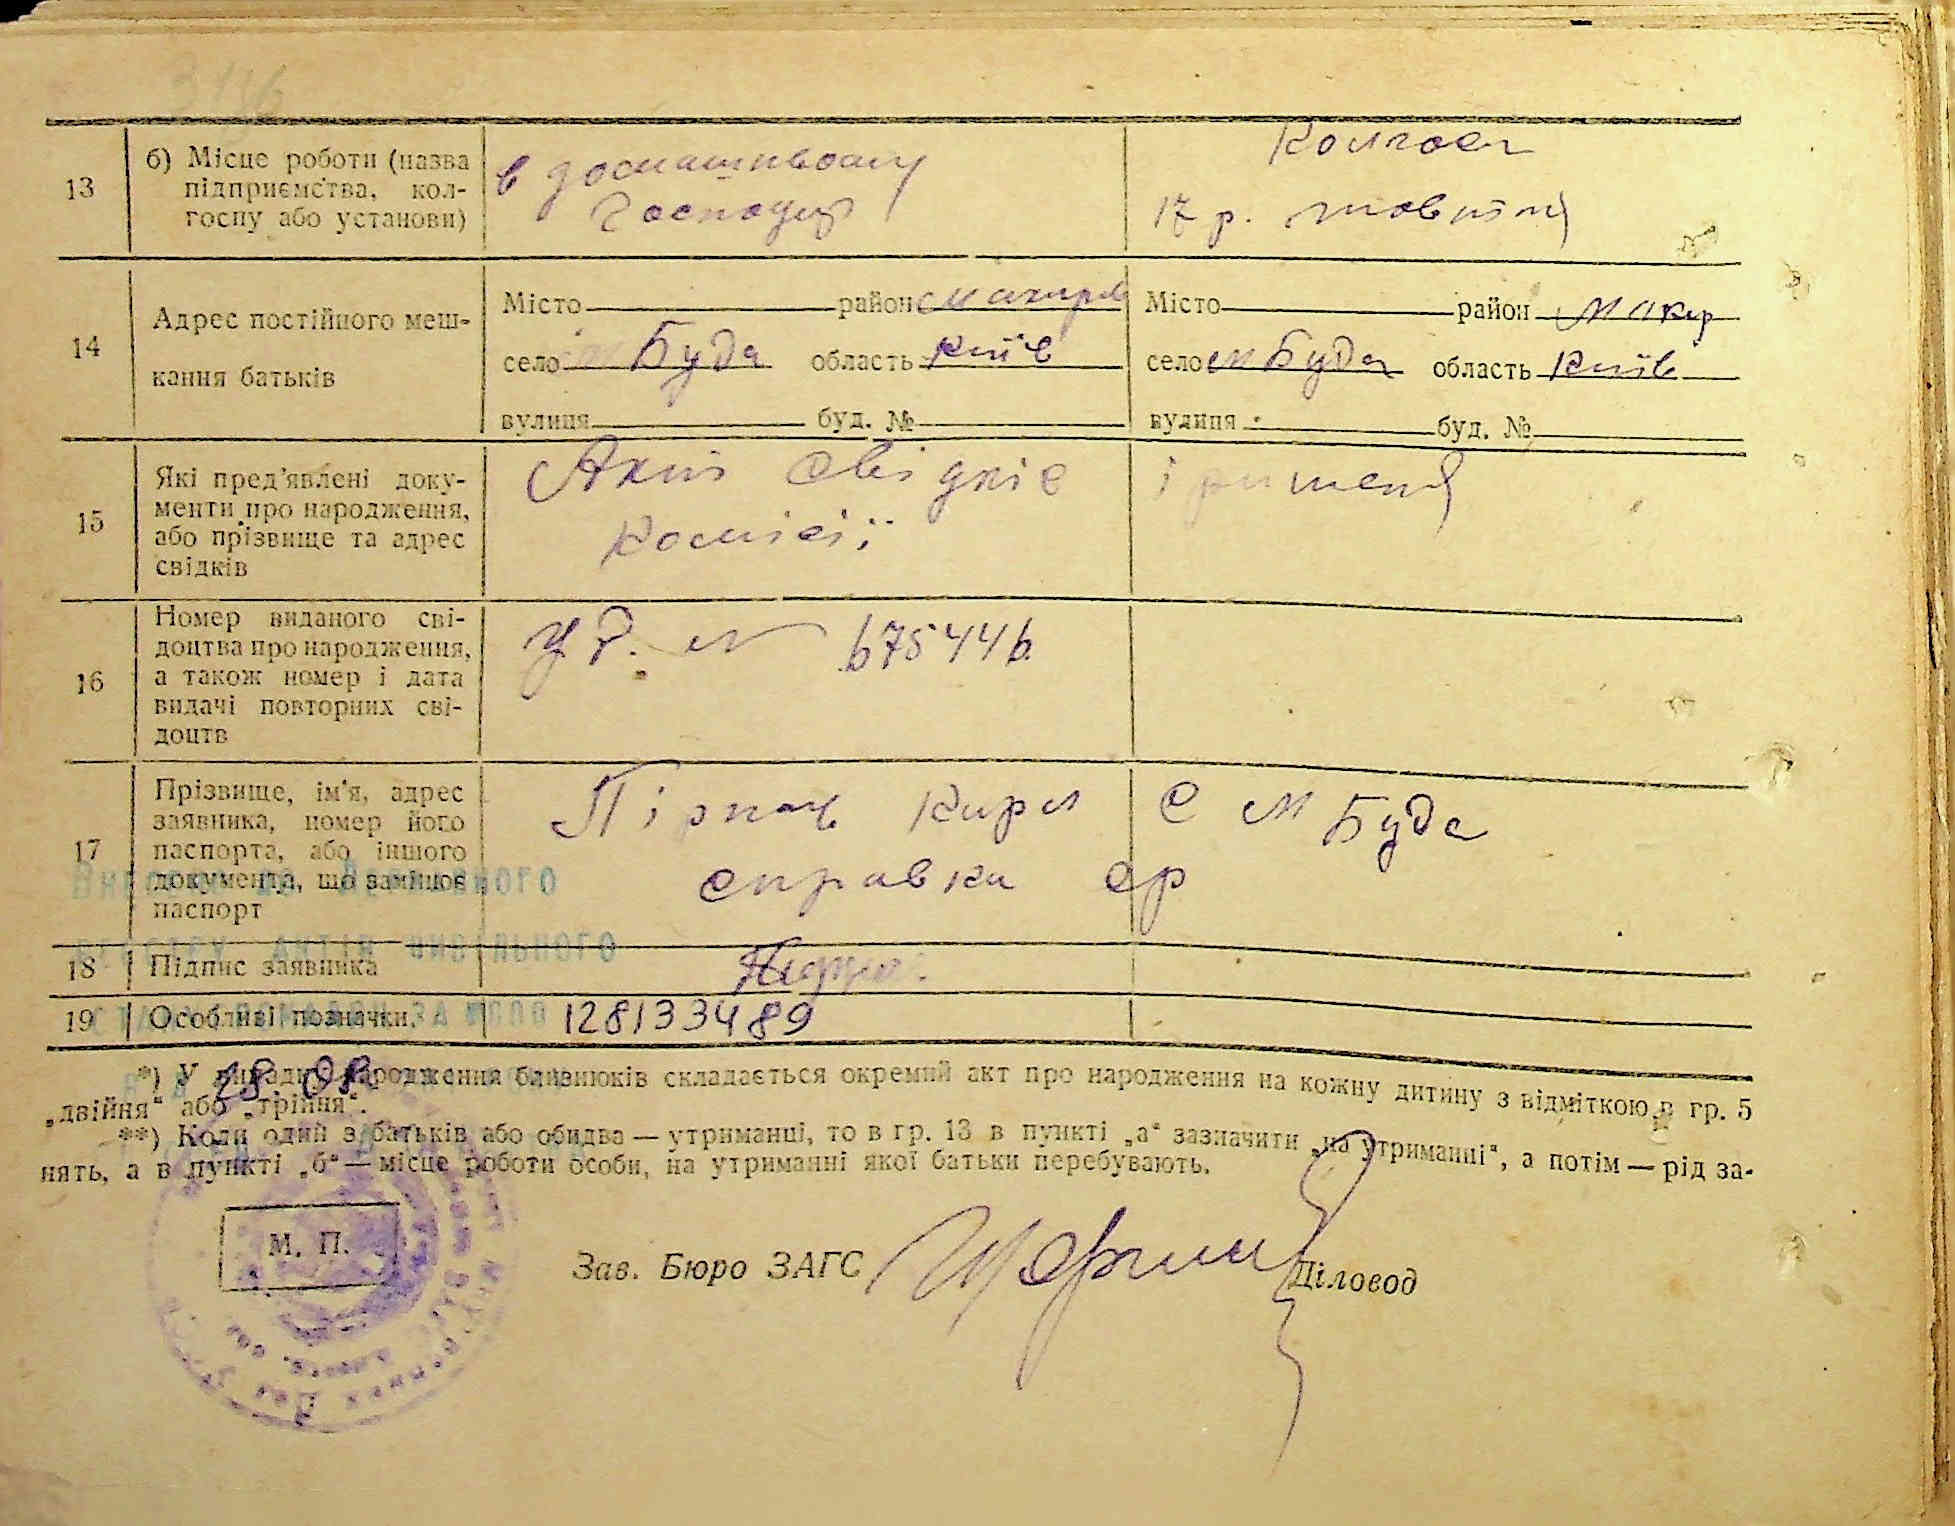 3116
13
б) Місце роботи (назва
підприємства, кол-
госпу або установи)
в домашньому
господар
Колгосп
17 р. жовтня
14
Адрес постійного меш-
кання батьків
Місто район Макарів
село М Буда область Київ
вулиця буд. №
Місто район Макар
село М Буда область Київ
вулиця буд. №
15
Які пред'явлені доку-
менти про народження,
або прізвище та адрес
свідків
Акт свідків
комісії
і рішення
16
Номер виданого сві-
доцтва про народження,
а також номер і дата
видачі повторних сві-
доцтв
УР. № 675446
17
Прізвище, ім'я, адрес
заявника, номер його
паспорта, або іншого
документа, що замінює
паспорт
Кирил С М Буда
справка ср
18
Підпис заявника
19
Особливі позначки.
1281333489
18.08.
*) У випадку народження близнюків складається окремий акт про народження на кожну дитину з відміткою в гр. 5
„двійня“ або „трійня“.
**) Коли один з батьків або обидва — утриманці, то в гр. 13 в пункті „а“ зазначити „на утриманні“, а потім — рід за-
нять, а в пункті „б“ — місце роботи особи, на утриманні якої батьки перебувають.
М. П.
Зав. Бюро ЗАГС
Діловод